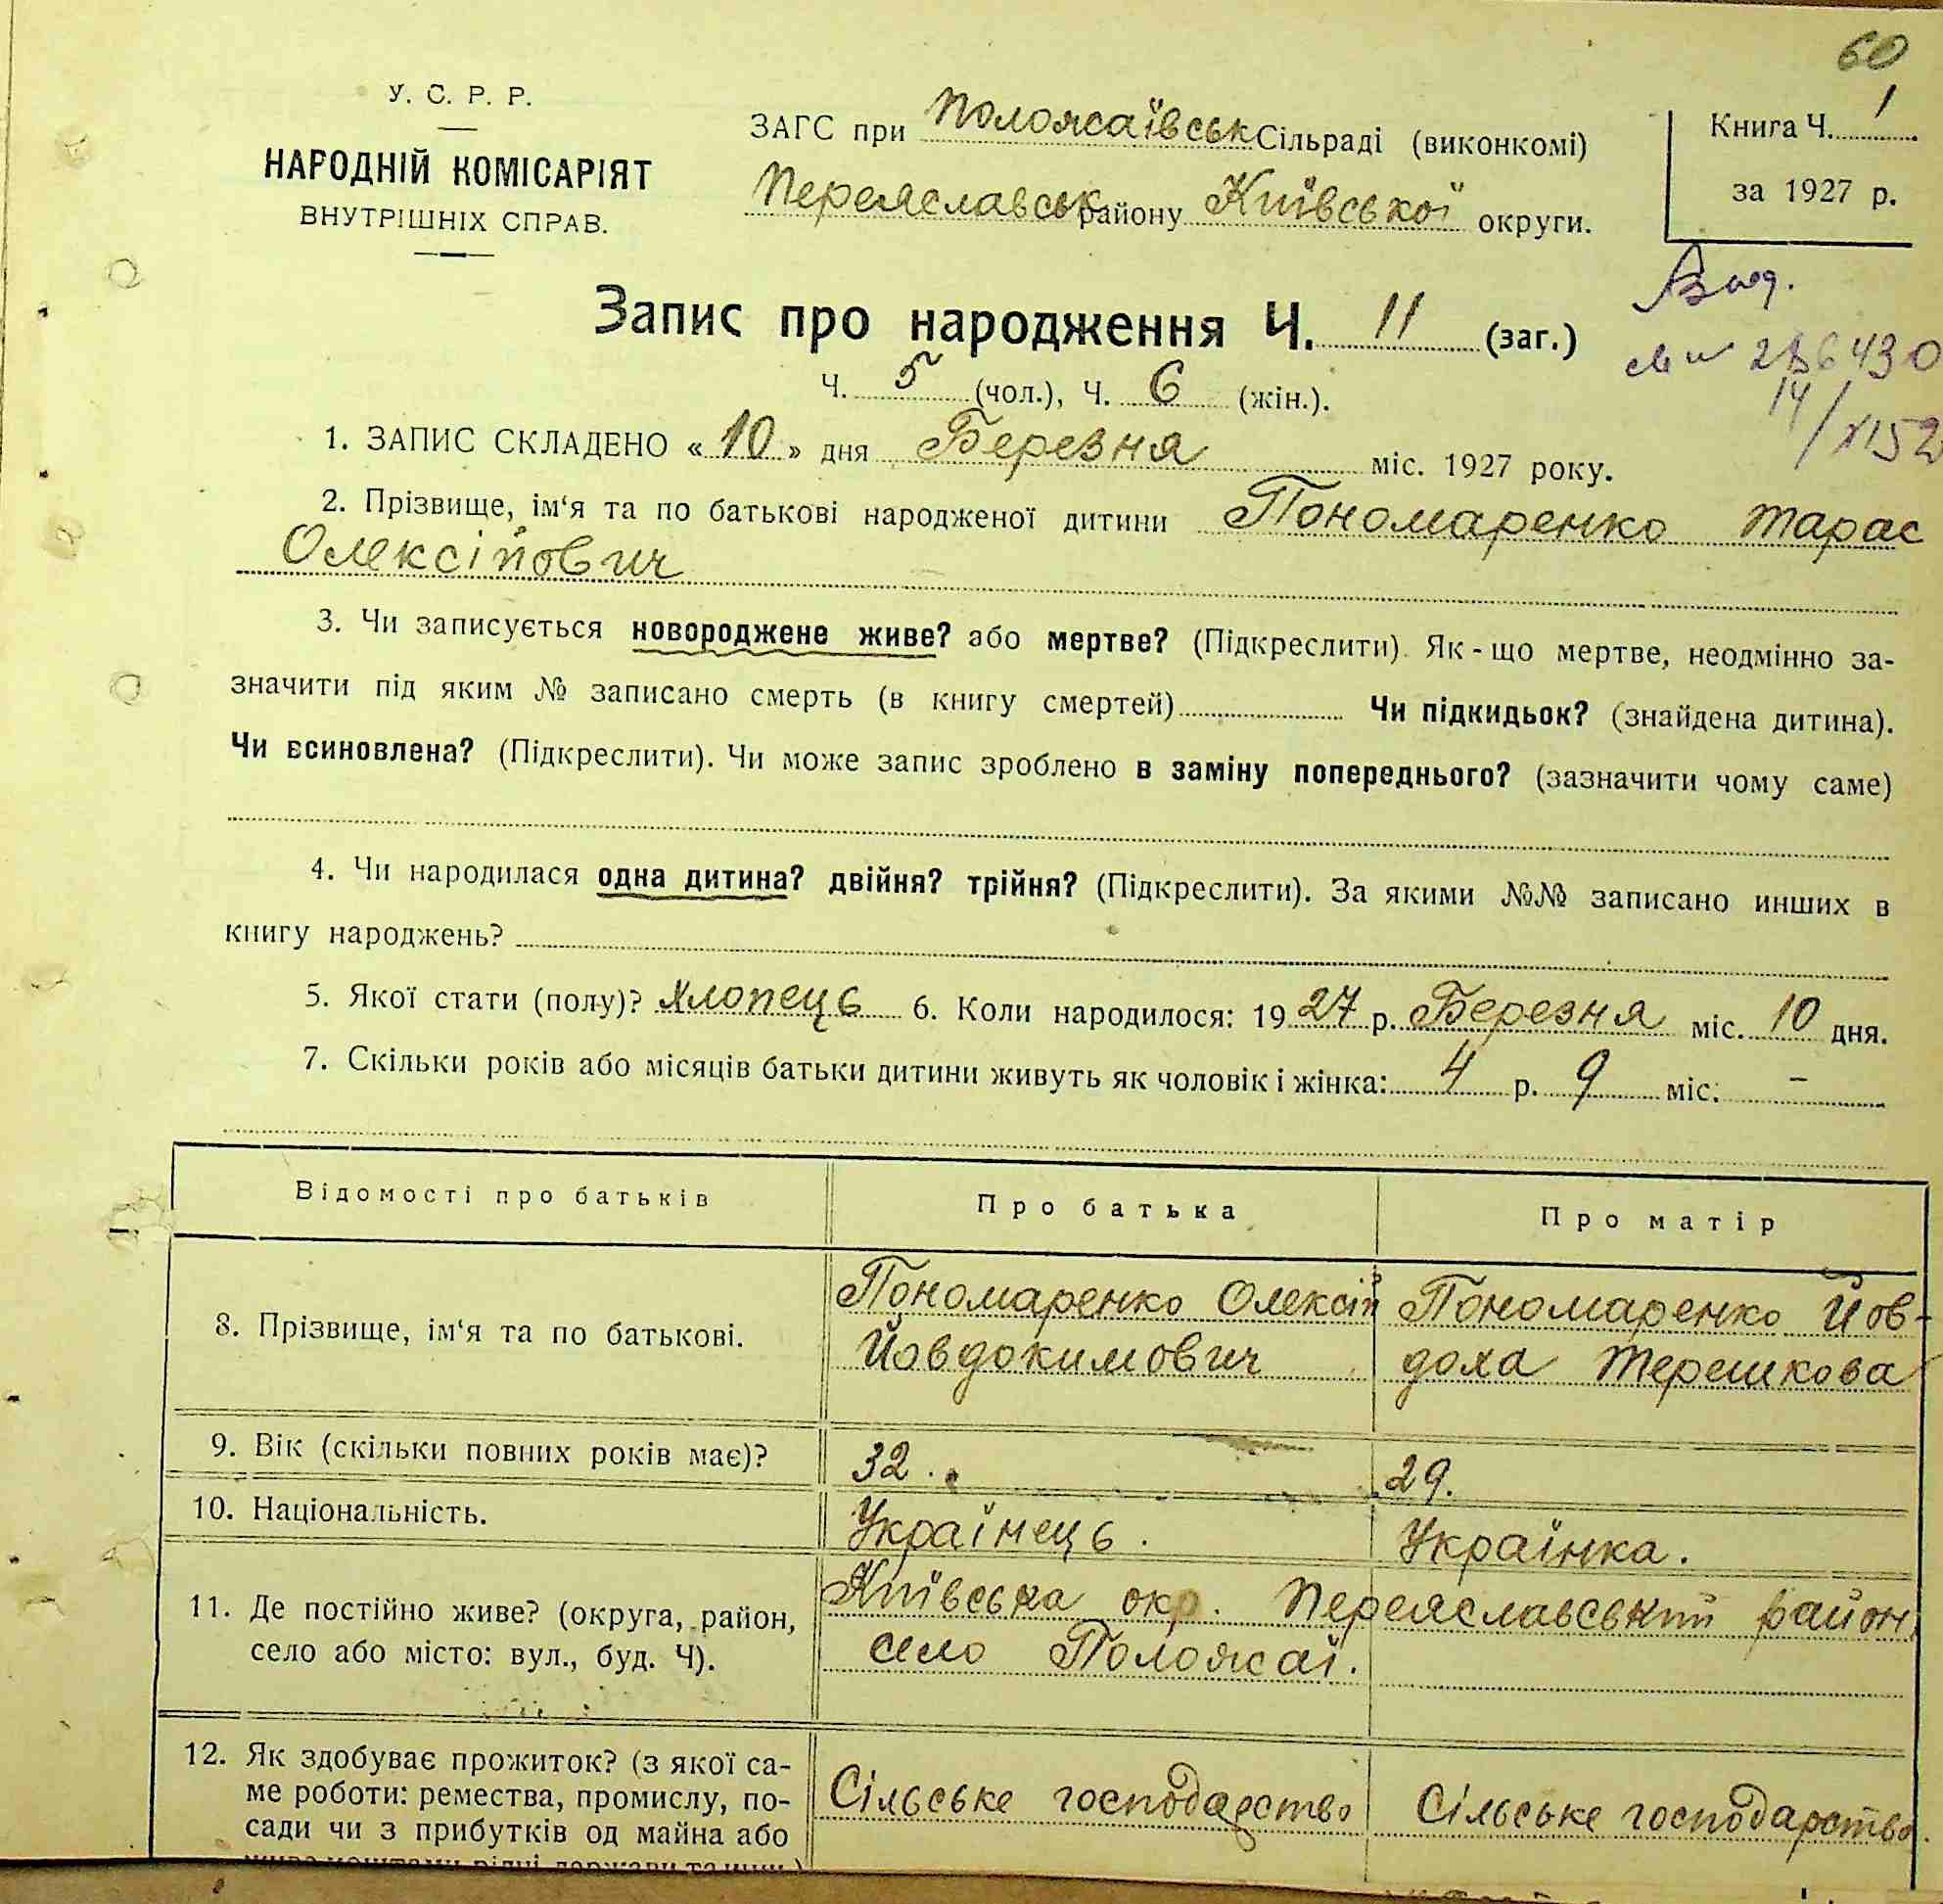 60
У. С. Р. Р.
НАРОДНІЙ КОМІСАРІЯТ
ВНУТРІШНІХ СПРАВ.
ЗАГС при Положаївськ Сільраді (виконкомі)
Переяславськ району Київської округи.
Книга Ч. 1
за 1927 р.
Запис про народження Ч. 11 (заг.)
Ч. 5 (чол.), Ч. 6 (жін.).
1. ЗАПИС СКЛАДЕНО « 10 » дня Березня міс. 1927 року.
2. Прізвище, ім‘я та по батькові народженої дитини Пономаренко Тарас
Олексійович
3. Чи записується новороджене живе? або мертве? (Підкреслити). Як-що мертве, неодмінно за-
значити під яким № записано смерть (в книгу смертей) Чи підкидьок? (знайдена дитина).
Чи всиновлена? (Підкреслити). Чи може запис зроблено в заміну попереднього? (зазначити чому саме)
4. Чи народилася одна дитина? двійня? трійня? (Підкреслити). За якими №№ записано инших в
книгу народжень?
5. Якої стати (полу)? хлопець 6. Коли народилося: 1927 р. Березня міс. 10 дня.
7. Скільки років або місяців батьки дитини живуть як чоловік і жінка: 4 р. 9 міс. –
Відомості про батьків
Про батька
Про матір
8. Прізвище, ім‘я та по батькові.
Пономаренко Олексій
Йовдокимович
Пономаренко Йов-
доха Терешкова
9. Вік (скільки повних років має)?
32.
29.
10. Національність.
Українець.
Українка.
11. Де постійно живе? (округа, район,
село або місто: вул., буд. Ч).
Київська окр. Переяславський район,
село Положаї.
12. Як здобуває прожиток? (з якої са-
ме роботи: ремества, промислу, по-
сади чи з прибутків од майна або
Сільське господарство
Сільське господарство.